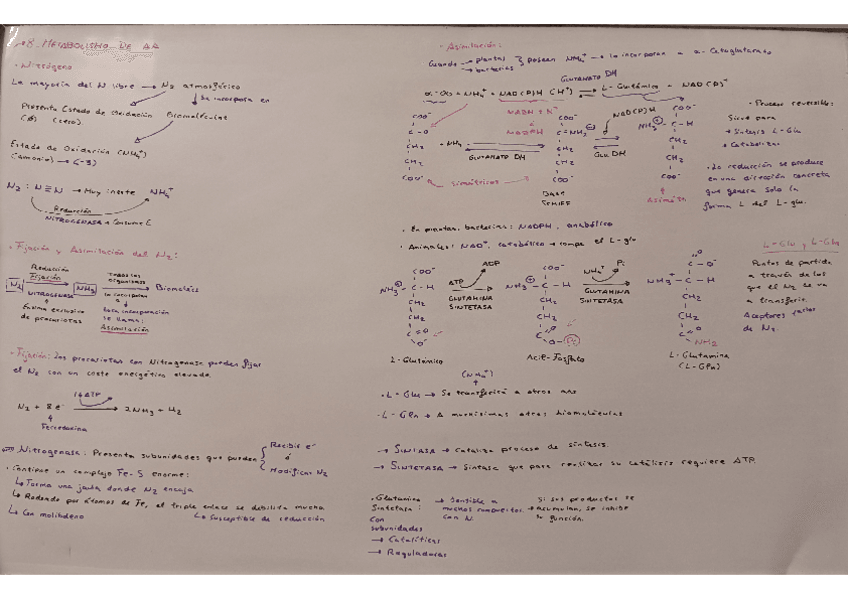 8. METABOLISMO DE AA
· Nitrógeno
La mayoría del N libre → N2 atmosférico
Presenta Estado de Oxidación
(0) (zero)
Se incorpora en
Biomoléculas
Estado de Oxidación (NH4+)
(amonio) → (-3)
N2 : N≡N → Muy inerte NH4+
Reducción
NITROGENASA + Consume E
· Fijación y Asimilación del N2:
Reducción
Fijación
N2
NITROGENASA
NH3
Todos los
organismos
lo incorporan
Biomoléc
Enzima exclusiva
de procariotas
Esta incorporación
se llama:
Asimilación
· Fijación: Los procariotas con Nitrogenasa pueden fijar
el N2 con un coste energético elevado.
16 ATP
N2 + 8e- → 2NH3 + H2
Ferredoxina
Nitrogenasa: Presenta subunidades que pueden
Recibir e-
ó
Modificar N2
· Contiene un complejo Fe-S enorme:
↳ Forma una jaula donde N2 encaja
↳ Rodeado por átomos de Fe, el triple enlace se debilita mucho
↳ Con molibdeno
↳ Susceptible de reducción
· Asimilación:
Cuando → plantas
→ bacterias
poseen NH4+ → lo incorporan a α-Cetoglutarato
GLUTAMATO DH
+ NH4+ + NAD(P)H (H+) ⇌ L-Glutámico + NAD(P)+
COO-
C=O
CH2
CH2
COO-
+ NH3
GLUTAMATO DH
NADH + H+
ó
NADPH
COO-
C=NH2
CH2
CH2
COO-
BASE
SCHIFF
Simétricos
NAD(P)H
Glu DH
COO-
NH3+ - C - H
CH2
CH2
COO-
Asimétr
· Proceso reversible:
Sirve para
· Síntesis L-Glu
· Catabolizar
· La reducción se produce
en una dirección concreta
que genera solo la
forma L del L-glu.
· En plantas, bacterias: NADPH, anabólico
· Animales: NAD+, catabólico → rompe el L-glu
COO-
NH3+ - C - H
CH2
CH2
L-Glutámico
ATP
ADP
GLUTAMINA
SINTETASA
COO-
NH3+ - C - H
CH2
CH2
Acil-Fosfato
NH4+
Pi
GLUTAMINA
SINTETASA
NH3+ - C - H
CH2
CH2
NH2
L-Glutamina
(L-Gln)
L-Glu y L-Gln
Puntos de partida
a través de los
que el N2 se va
a transferir.
Aceptores
de N2.
(NH4+)
· L-Glu → Se transferirá a otros aas
· L-Gln → A muchísimas otras biomoléculas
→ SINTASA → Cataliza proceso de síntesis.
→ SINTETASA → Sintasa que para realizar su catálisis requiere ATP.
· Glutamina
Sintetasa:
con
subunidades
→ Catalíticas
→ Reguladoras
→ Sensible a
muchos compuestos
con N
Si sus productos se
→ acumulan, se inhibe
su función.